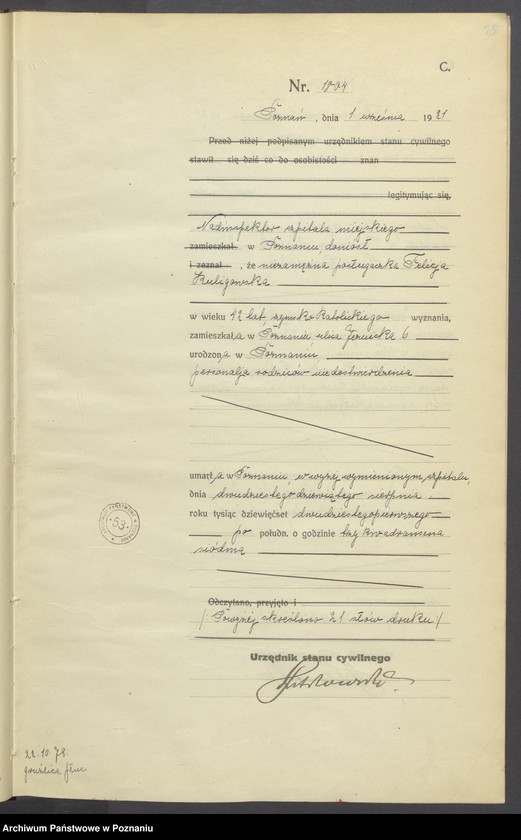 C.
Nr. 1004
Poznań, dnia 1 września 1921
Przed niżej podpisanym urzędnikiem stanu cywilnego
stawił się dziś co do osobistości znan
legitymując się,
Nadinspektor szpitala miejskiego
zamieszkał w Poznaniu doniósł
i zeznał, że niezamężna posługaczka Felicja
Kuligowska
w wieku 42 lat, rzymsko katolickiego wyznania,
zamieszkała w Poznaniu ulica 6
urodzona w Poznaniu
personalja rodziców niedostwierdzenia
umarła w Poznaniu, w wyżej wymienionym szpitalu,
dnia dwudziestego dziewiątego sierpnia
roku tysiąc dziewięćset dwudziestegopierwszego
po połudn. o godzinie trzy kwadransena
siódmą
Odczytano, przyjęto i
/ Powyżej skreślono 21 słów druku /
Urzędnik stanu cywilnego
53
22.10.78.
gruźlica płuc
Archiwum Państwowe w Poznaniu